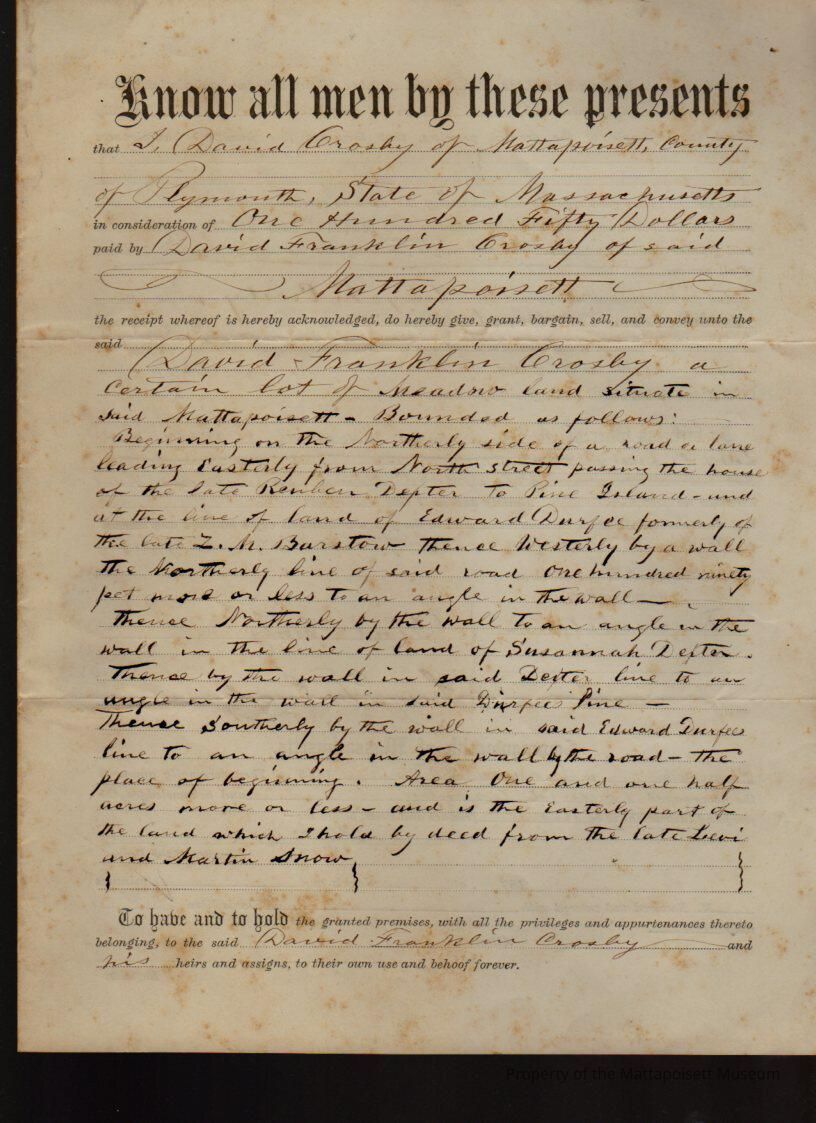 Know all men by these presents
that I, David Crosby of Mattapoisett, County
of Plymouth, State of Massachusetts
in consideration of One Hundred Fifty Dollars
paid by David Franklin Crosby of said
Mattapoisett
the receipt whereof is hereby acknowledged, do hereby give, grant, bargain, sell, and convey unto the
said David Franklin Crosby a
certain lot of Meadow land situate in
said Mattapoisett - Bounded as follows:
Beginning on the Northerly side of a road or lane
leading Easterly from North street passing the house
of the late Reuben Dexter to Pine Island - and
at the line of land of Edward Durfee formerly of
the late Z. M. Barstow thence Westerly by a wall
the Northerly line of said road One hundred ninety
feet more or less to an angle in the wall —
thence Northerly by the wall to an angle in the
wall in the line of land of Susannah Dexter.
Thence by the wall in said Dexter line to an
angle in the wall in said Durfees line —
Thence Southerly by the wall in said Edward Durfees
line to an angle in the wall by the road - the
place of beginning. Area One and one half
acres more or less - and is the Easterly part of
the land which I hold by deed from the late Levi
and Martin Snow
To have and to hold the granted premises, with all the privileges and appurtenances thereto
belonging, to the said David Franklin Crosby and
his heirs and assigns, to their own use and behoof forever.
Property of the Mattapoisett Museum